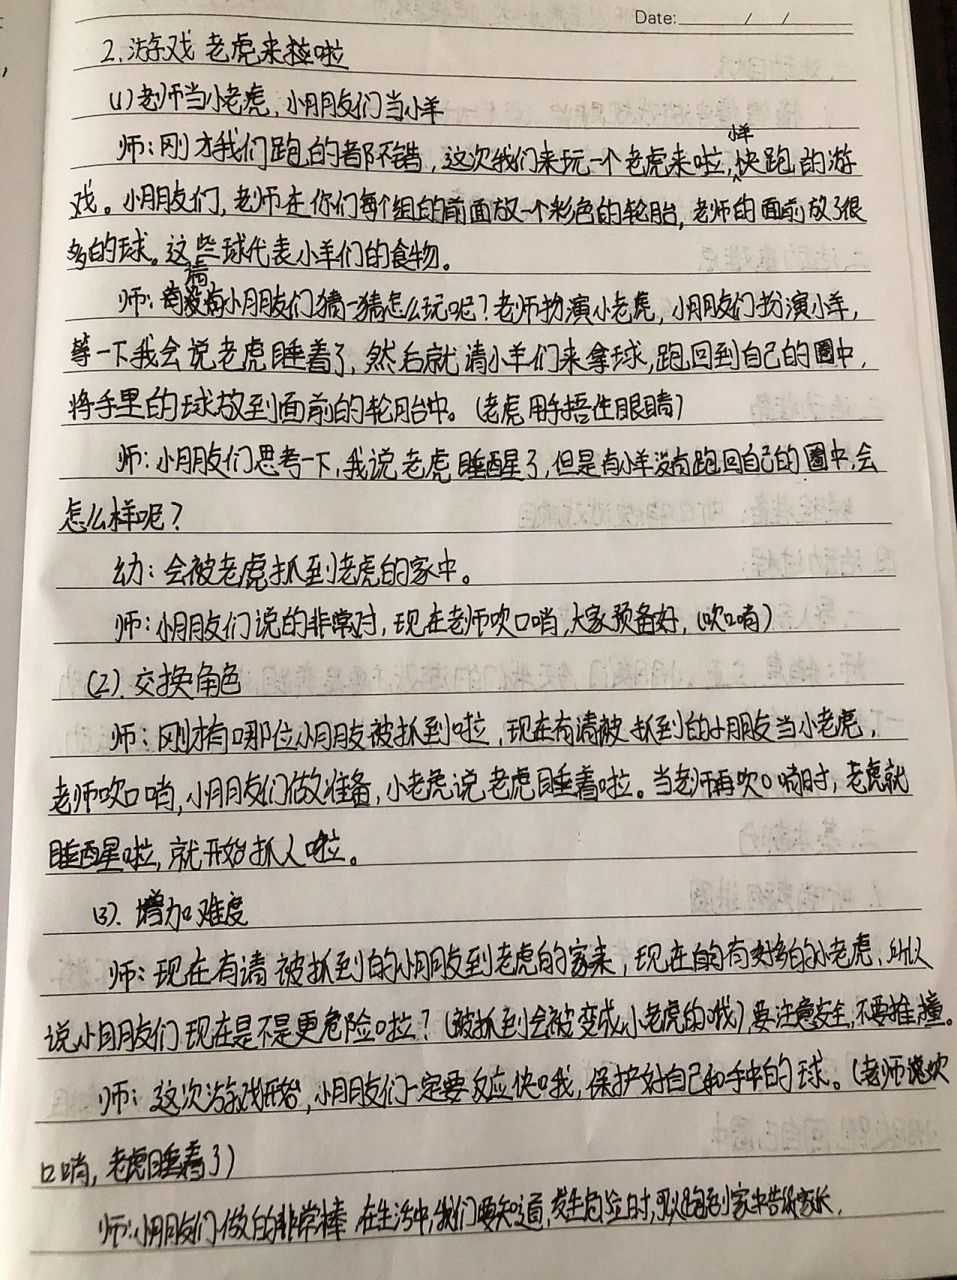 Date: / /
2.游戏 老虎来捉啦
(1)老师当小老虎,小朋友们当小羊
师:刚才我们跑的都不错,这次我们来玩一个老虎来啦,小羊快跑的游
戏。小朋友们,老师在你们每个组的前面放一个彩色的轮胎,老师的面前放了很
多的球。这些球代表小羊们的食物。
师:请小朋友们猜一猜怎么玩呢?老师扮演小老虎,小朋友们扮演小羊,
等一下我会说老虎睡着了,然后就请小羊们来拿球,跑回到自己的圈中,
将手里的球放到面前的轮胎中。(老虎用手捂住眼睛)
师:小朋友们思考一下,我说老虎睡醒了,但是有小羊没有跑回自己的圈中,会
怎么样呢?
幼:会被老虎抓到老虎的家中。
师:小朋友们说的非常对,现在老师吹口哨,大家预备好,(吹口哨)
(2).交换角色
师:刚才有哪位小朋友被抓到啦,现在有请被抓到的小朋友当小老虎,
老师吹口哨,小朋友们做准备,小老虎说老虎睡着啦。当老师再吹口哨时,老虎就
睡醒啦,就开始抓人啦。
(3).增加难度
师:现在有请被抓到的小朋友到老虎的家来,现在有的小老虎,所以
说小朋友们现在是不是更危险啦?(被抓到会被变成小老虎的哦)要注意安全,不要推撞。
师:这次游戏开始,小朋友们一定要反应快哦,保护好自己和手中的球。(老师吹
口哨,老虎睡着了)
师:小朋友们做的非常棒 在生活中,我们要知道,发生危险时,要跑到家中告诉家长.